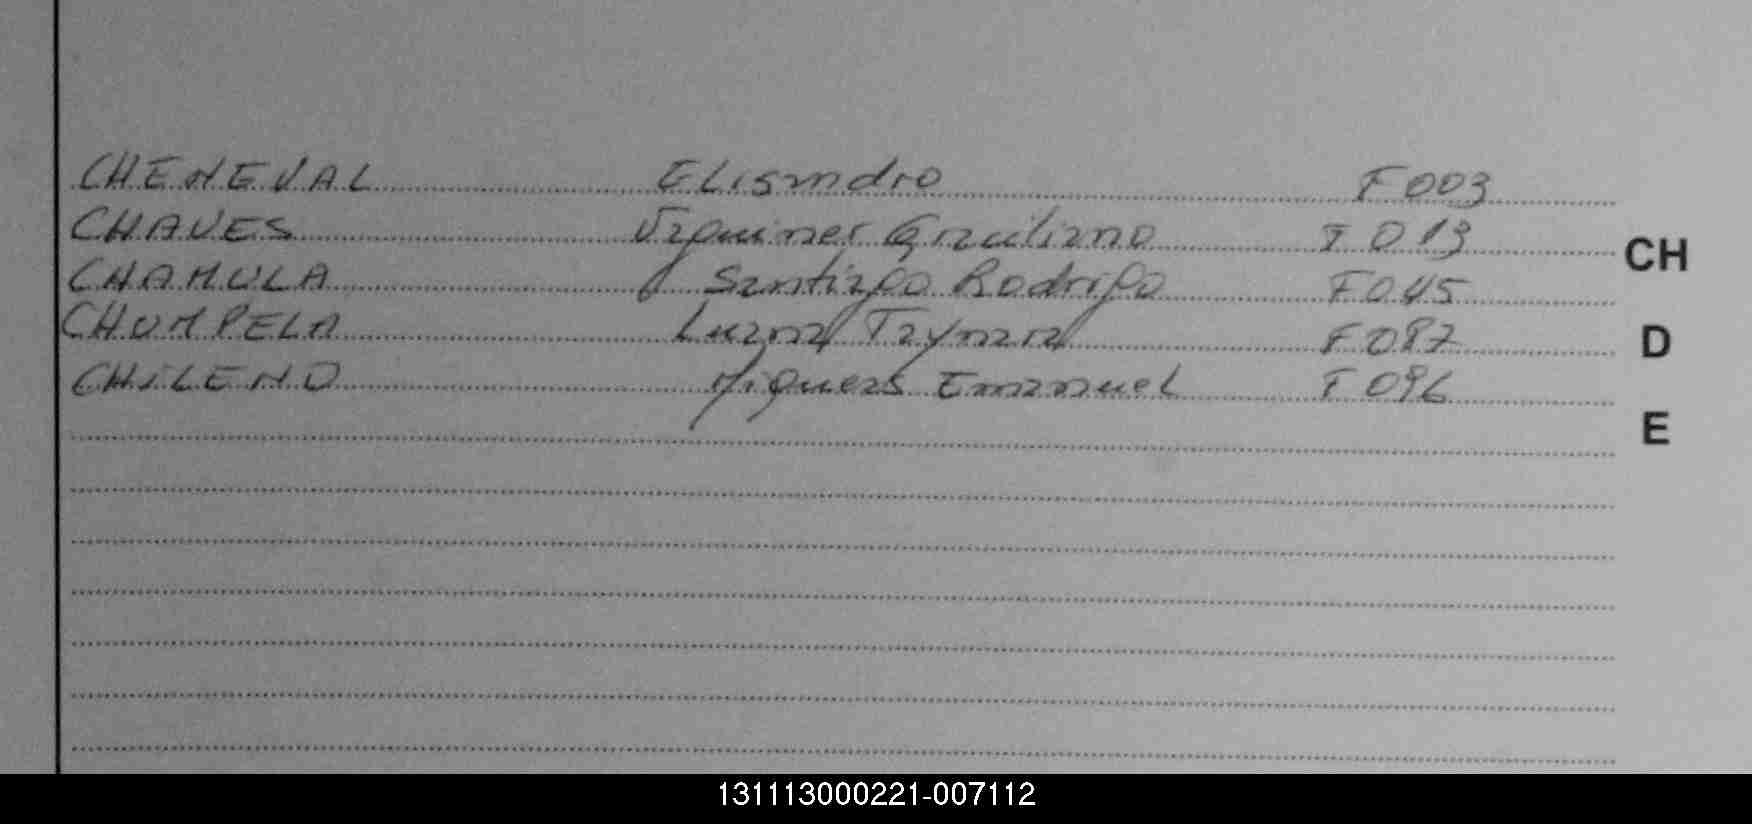 CHENEVAL Elisandro F003
CHAVES Graciliano F013
CHAMULA Santiago Rodrigo F045
CH
CHUMPELA Luana Taynara F087
D
CHILENO Emanuel F096
E
131113000221-007112